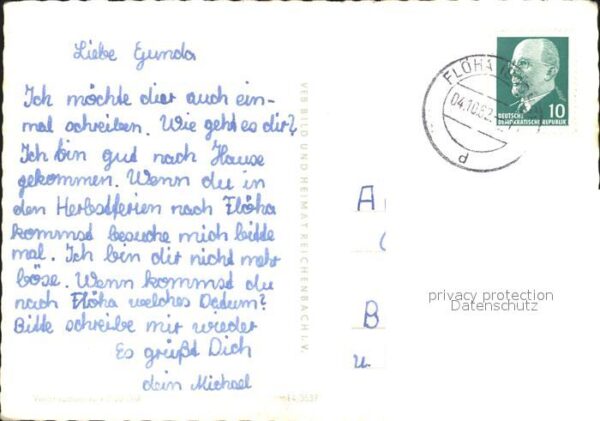 Liebe Gunda
Ich möchte dier auch ein-
mal schreiben. Wie geht es dir?
Ich bin gut nach Hause
gekommen. Wenn du in
den Herbstferien nach Flöha
kommst besuche mich bitte
mal. Ich bin dir nicht mehr
böse. Wenn kommst du
nach Flöha welches Datum?
Bitte schreibe mir wieder
Es grüßt Dich
dein Michael
VEB BILD UND HEIMAT REICHENBACH I. V.
FLÖHA
04.10.62
d
10
DEUTSCHE
DEMOKRATISCHE REPUBLIK
A
B
u.
privacy protection
Datenschutz